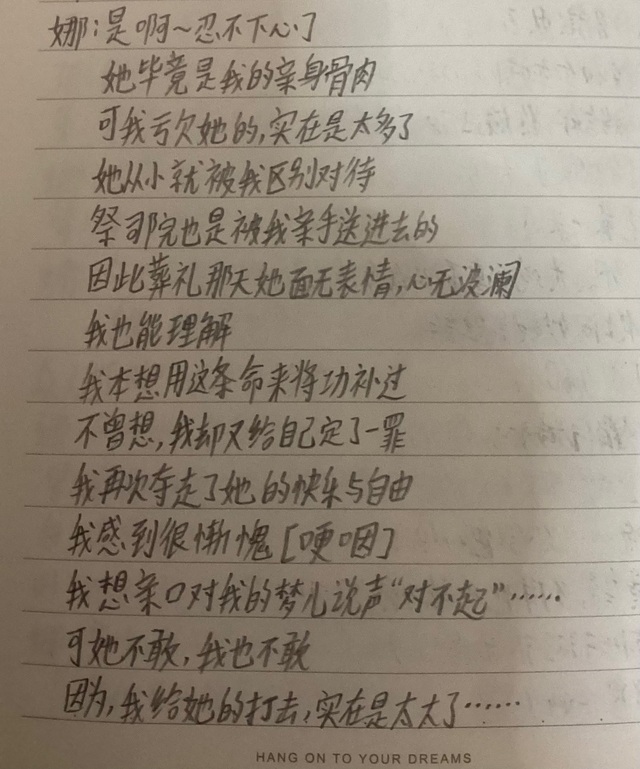 娜:是啊~忍不下心了
她毕竟是我的亲身骨肉
可我亏欠她的,实在是太多了
她从小就被我区别对待
祭司院也是被我亲手送进去的
因此葬礼那天她面无表情,心无波澜
我也能理解
我本想用这条命来将功补过
不曾想,我却又给自己定了一罪
我再次夺走了她的快乐与自由
我感到很惭愧[哽咽]
我想亲口对我的梦儿说声“对不起”……
可她不敢,我也不敢
因为,我给她的打击,实在是太大了……
HANG ON TO YOUR DREAMS